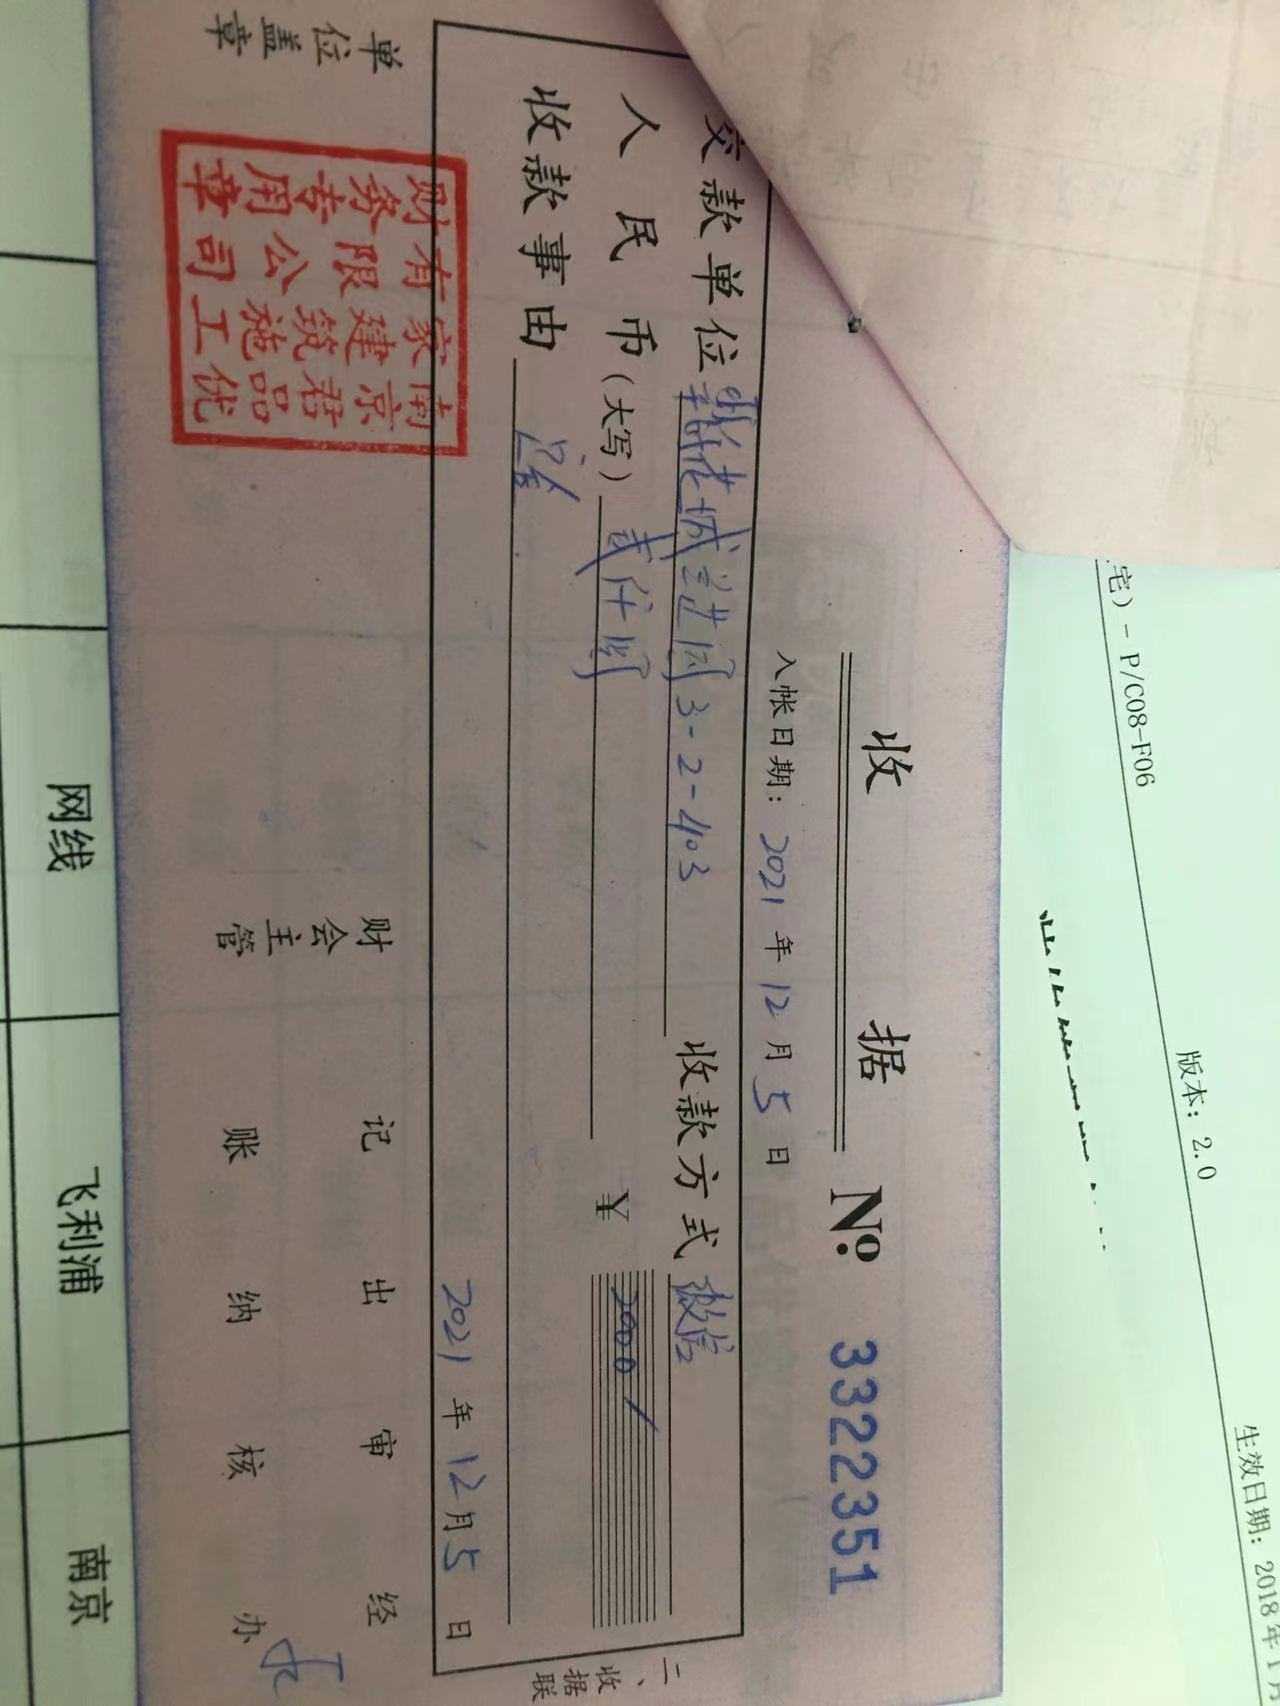 宅) - P/C08-F06
版本: 2.0
生效日期: 2018年1月
收 据
№ 3322351
入帐日期: 2021 年 12 月 5 日
交款单位 城 3-2-403 收款方式 微信
人民币(大写) 贰仟圆 ¥ 2000/
收款事由
2021 年 12 月 5 日
二、收据联
单位盖章 财会主管 记账 出纳 审核 经办
南京君优
家建筑施工
有限公司
财务专用章
网线 飞利浦 南京